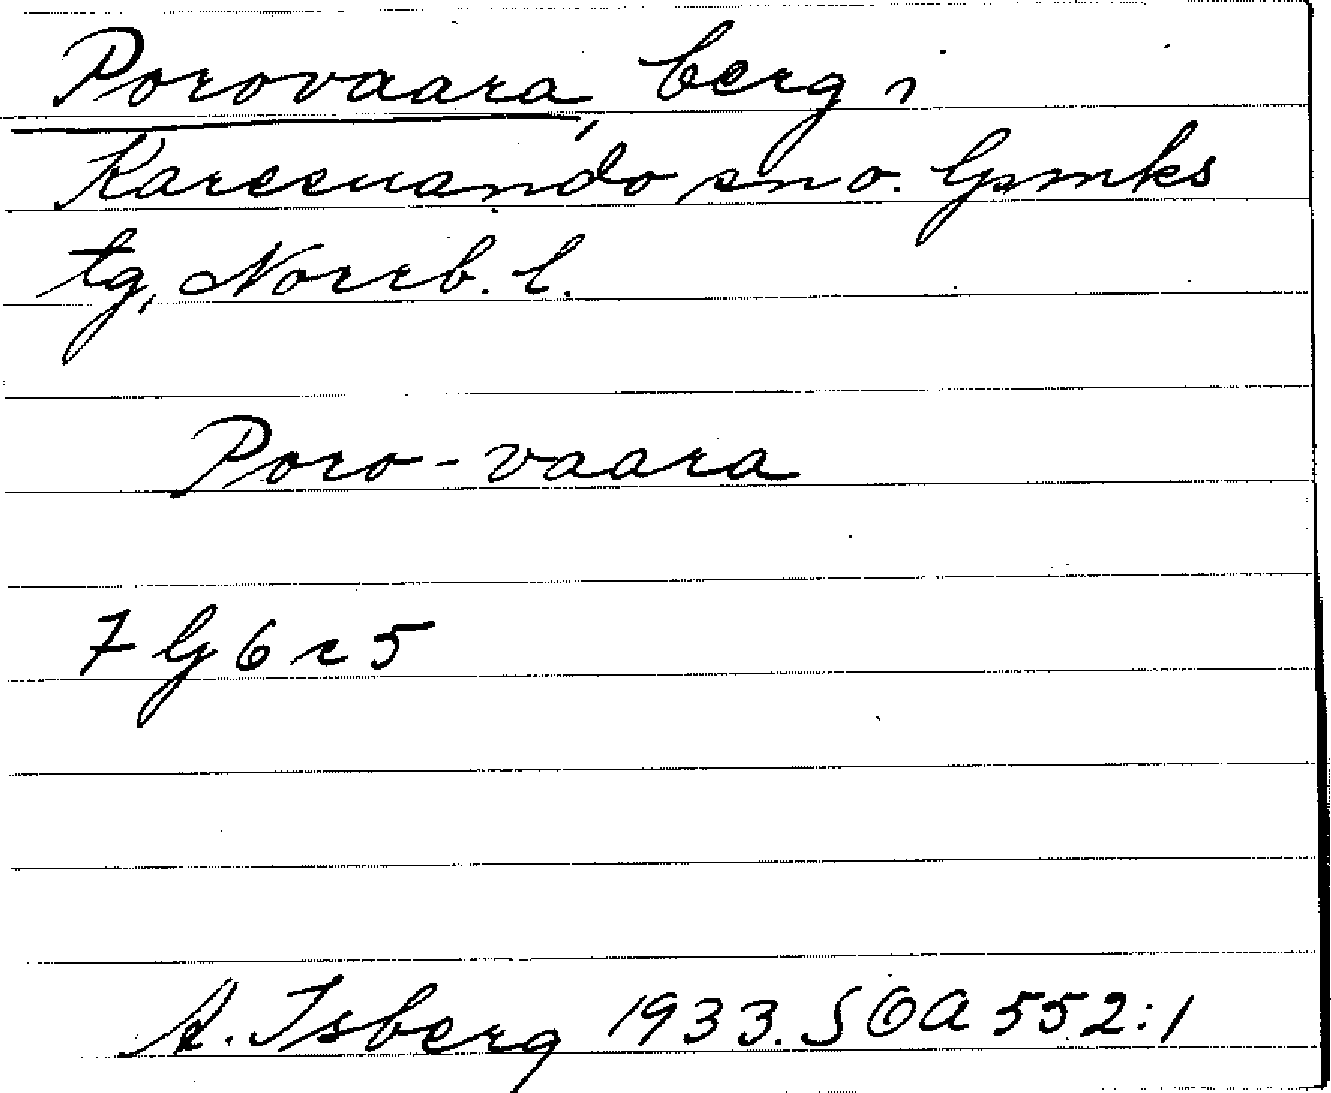 Porovaara, berg i
Karesuando sn o. lpmks
tg, Norrb. l.
Poro-vaara
7 lg 6 r 5
A. Isberg 1933. SOA 552:1